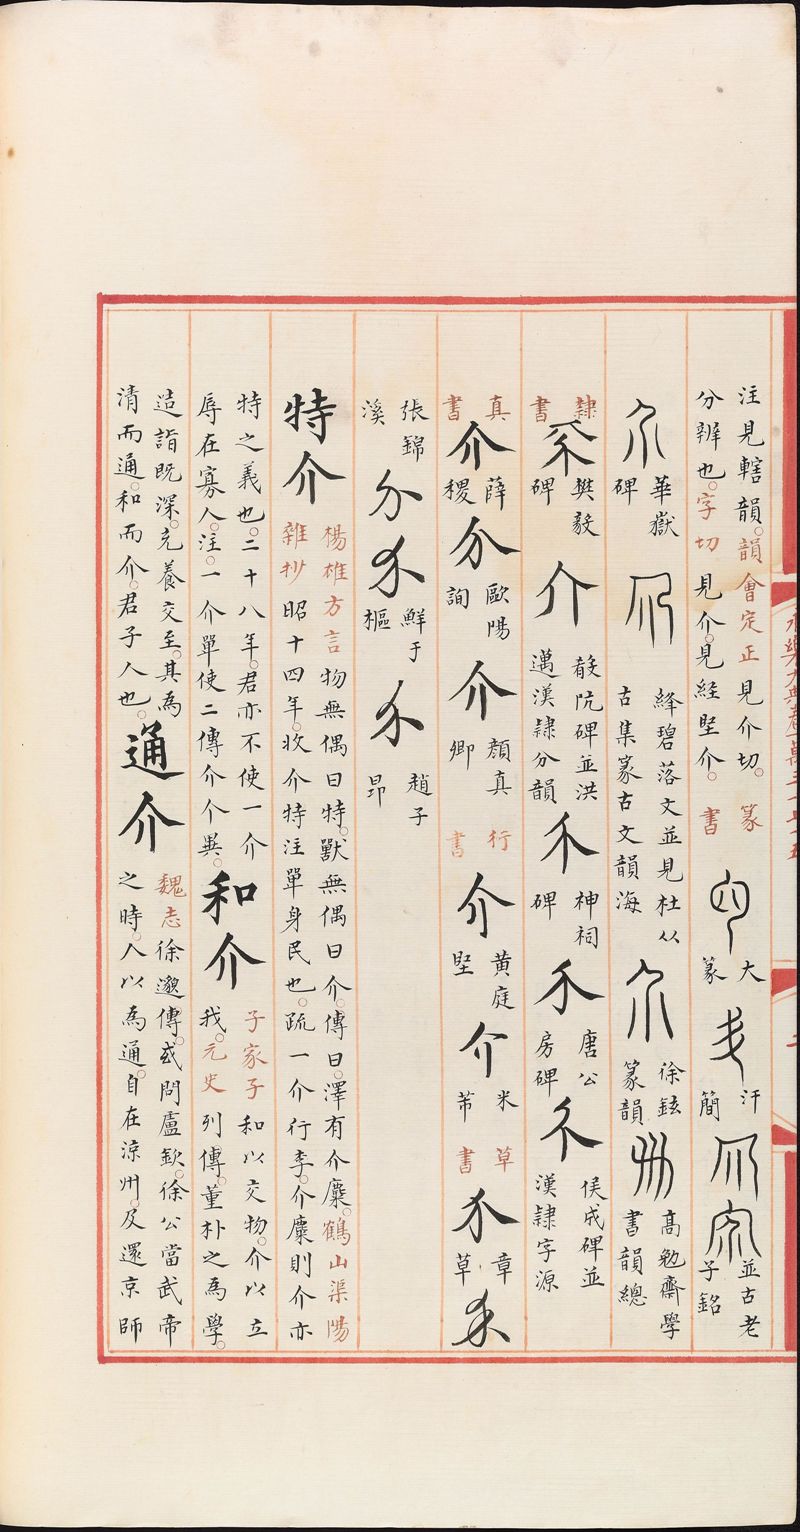 注見轄韻。韻會定正見介切。
分辨也。字切見介。見經堅介。
篆書
大篆
汗簡
並古老子銘
華嶽碑
絳碧落文並見杜从古集篆古文韻海
徐鉉篆韻
高勉齋學書韻總
隸書
樊毅碑
介
殽阬碑並洪邁漢隸分韻
神祠碑
唐公房碑
侯成碑並漢隸字源
真書
介
薛稷
歐陽詢
介
顏真卿
行書
介
黃庭堅
介
米芾
草書
章草
張錦溪
鮮于樞
趙子昂
特介
楊雄方言物無偶曰特。獸無偶曰介。傳曰。澤有介麋。鶴山渠陽
雜抄昭十四年。收介特注單身民也。疏一介行李。介麋則介亦
特之義也。二十八年。君亦不使一介
辱在寡人。注。一介單使二傳介个異。
和介
子家子和以交物。介以立
我。元史列傳。董朴之為學。
造詣既深。充養交至。其為
清而通。和而介。君子人也。
通介
魏志徐邈傳。或問盧欽。徐公當武帝
之時。人以為通。自在涼州。及還京師